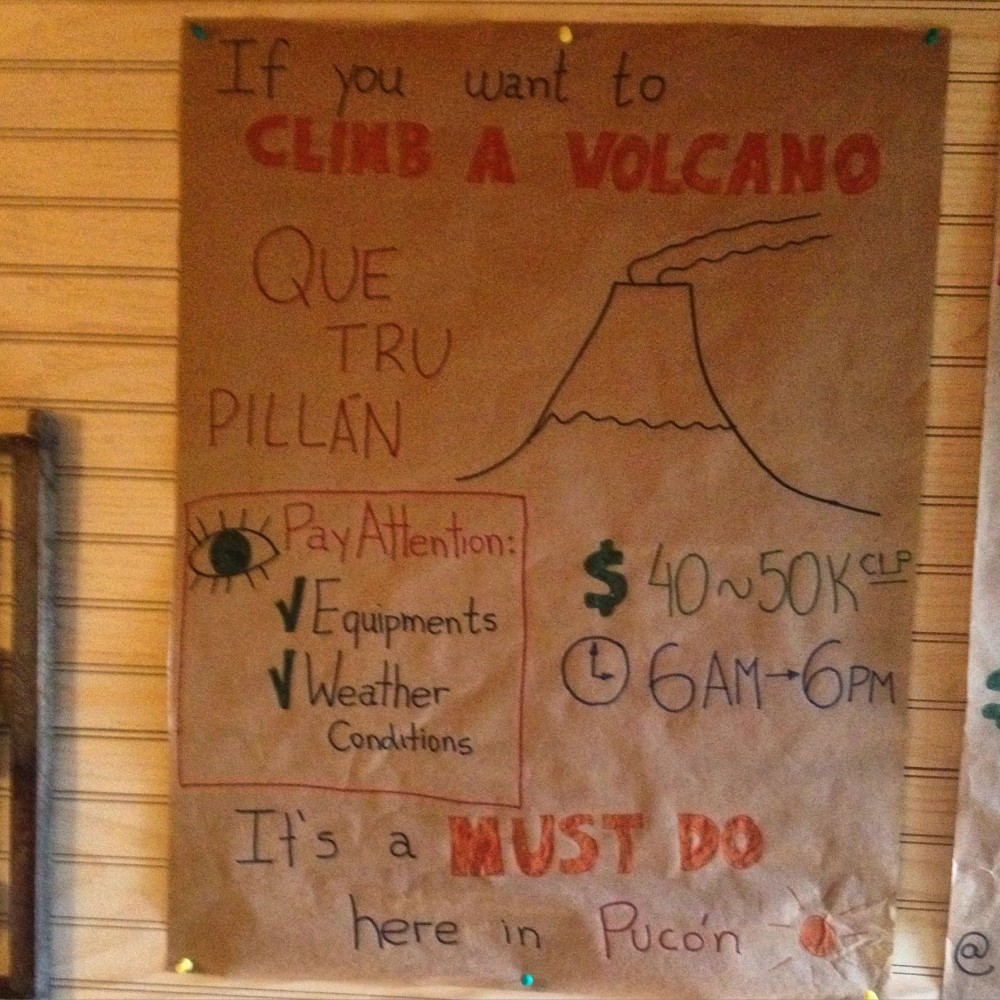 If you want to
CLIMB A VOLCANO
QUE
TRU
PILLÁN
Pay Attention:
√ Equipments
√ Weather
Conditions
$ 40~50K CLP
6AM→6PM
It's a MUST DO
here in Pucón
@